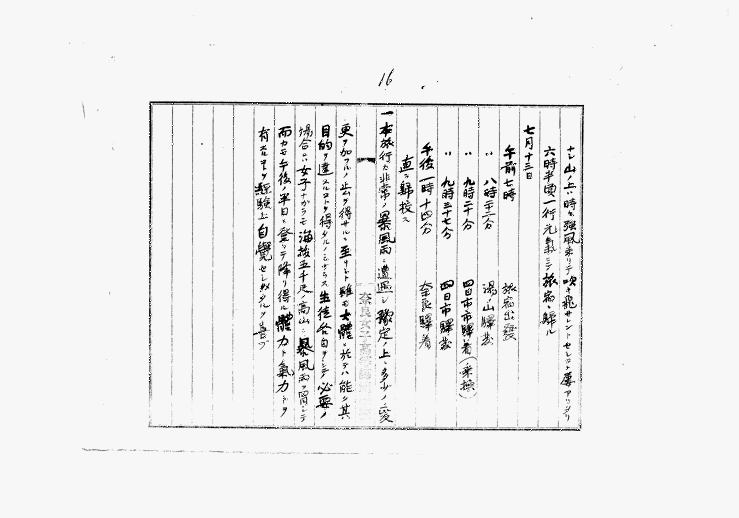 16
ナレ山ノ上ハ時々強風来リテ吹キ飛サレントセシコト屡アリタリ
六時半頃一行元氣ニテ旅宿ニ歸ル
七月十三日
午前七時 旅宿出發
〃 八時三十二分 湯ノ山驛發
〃 九時二十分 四日市市驛着(乗換)
〃 九時三十七分 四日市驛發
午後一時十四分 奈良驛着
直ニ歸校ス
一本旅行ハ非常ノ暴風雨ニ遭遇シ豫定ノ上ニ多少ノ変
更ヲ加フルノ止ムヲ得サルニ至リシト雖モ大體ニ於テハ能ク其
目的ヲ達スルコトヲ得タルノミナラス生徒各自ヲシテ必要ノ
場合ハ女子ナカラモ海抜五千尺ノ高山ニ暴風雨ヲ冒シテ
而カモ午後ノ半日ニ登リテ降リ得ル體力ト氣力トヲ
有スルコトヲ經驗上自覺セシメタルヲ喜フ